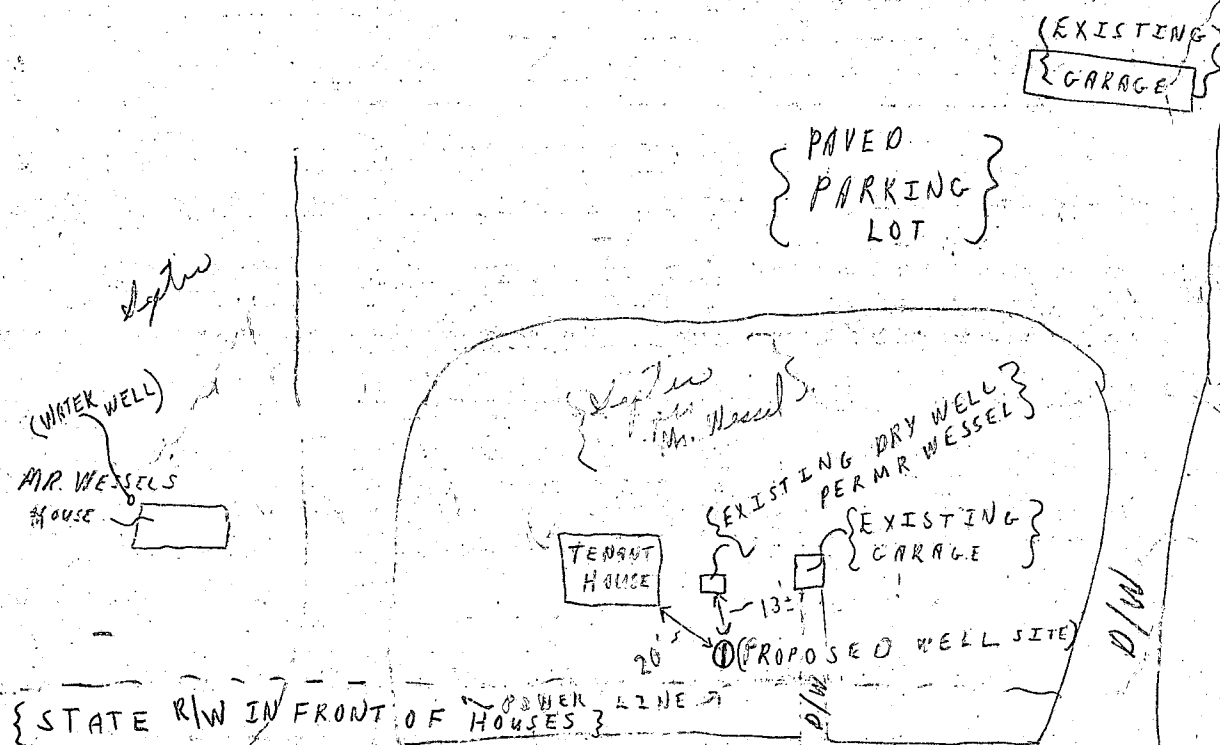 {EXISTING}
{GARAGE}
{PAVED
PARKING
LOT}
Septic
(WATER WELL)
MR. WESSELS
HOUSE
{Septic
Mr. Wessel}
{EXISTING DRY WELL
PER MR WESSEL}
{EXISTING
GARAGE}
TENANT
HOUSE
13'±
20'±
(PROPOSED WELL SITE)
D/W
D/W
POWER LINE
{STATE R/W IN FRONT OF HOUSES}